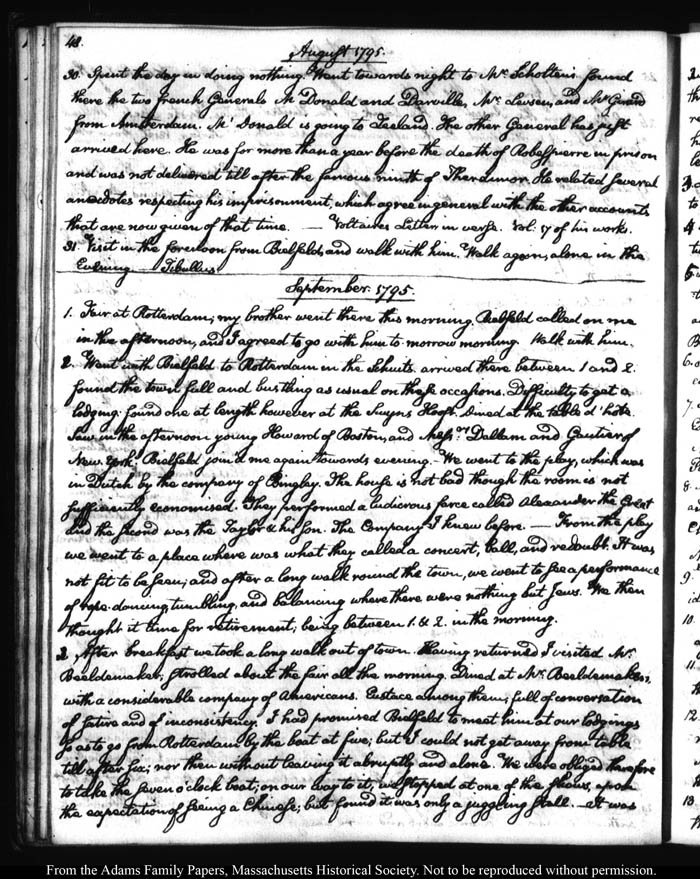 48.
August 1795.
30. Spent the day in doing nothing. Went towards night to Mr. Scholten's found
there the two french Generals M Donald and Darville, Mr. Levsen, and Mr. Girard
from Amsterdam. Mc Donald is going to Zeeland. The other General has just
arrived here. He was for more than a year before the death of Robespierre in prison
and was not delivered till after the famous ninth of Thermidor. He related several
anecdotes respecting his imprisonment, which agree in general with the other accounts
that are now given of that time. — Voltaire's Letter in verse. Vol. 17 of his works.
31. Visit in the forenoon from Bielfeld, and walk with him. Walk again, alone in the
Evening — Tibullus
September. 1795.
1. Fair at Rotterdam; my brother went there this morning. Bielfeld called on me
in the afternoon, and I agreed to go with him to-morrow morning. Walk with him.
2. Went with Bielfeld to Rotterdam in the Schuits. arrived there between 1 and 2.
found the town full and bustling as usual on these occasions. Difficulty to get a
lodging. found one at length however at the Swyns Hooft. Dined at the table d'hote.
Saw in the afternoon young Howard of Boston, and Messrs. Dallam and Gautier of
New York. Bielfeld join'd me again towards evening. We went to the play, which was
in Dutch by the company of Bingley. The house is not bad though the room is not
sufficiently economised. They performed a ludicrous farce called Alexander the Great
and the second was the Taylor & his Son. The Company I knew before. — From the play
we went to a place where was what they called a concert, ball, and redoubt. It was
not fit to be seen; and after a long walk round the town, we went to see a performance
of rope-dancing, tumbling, and balancing where there were nothing but Jews. We then
thought it time for retirement; being between 1. & 2. in the morning.
3. After breakfast we took a long walk out of town. Having returned I visited Mr.
Beeldemaker; strolled about the fair all the morning. Dined at Mr. Beeldemaker's,
with a considerable company of Americans. Eustace among them; full of conversation
of satire and of inconsistency. I had promised Bielfeld to meet him at our lodgings
so as to go from Rotterdam by the boat at five; but I could not get away from table
till after six; nor then without leaving it abruptly and alone. We were obliged therefore
to take the seven o'clock boat; on our way to it, we stopped at one of the shows, upon
the expectation of seeing a Chinese; but found it was only a juggling stall. — It was
From the Adams Family Papers, Massachusetts Historical Society. Not to be reproduced without permission.